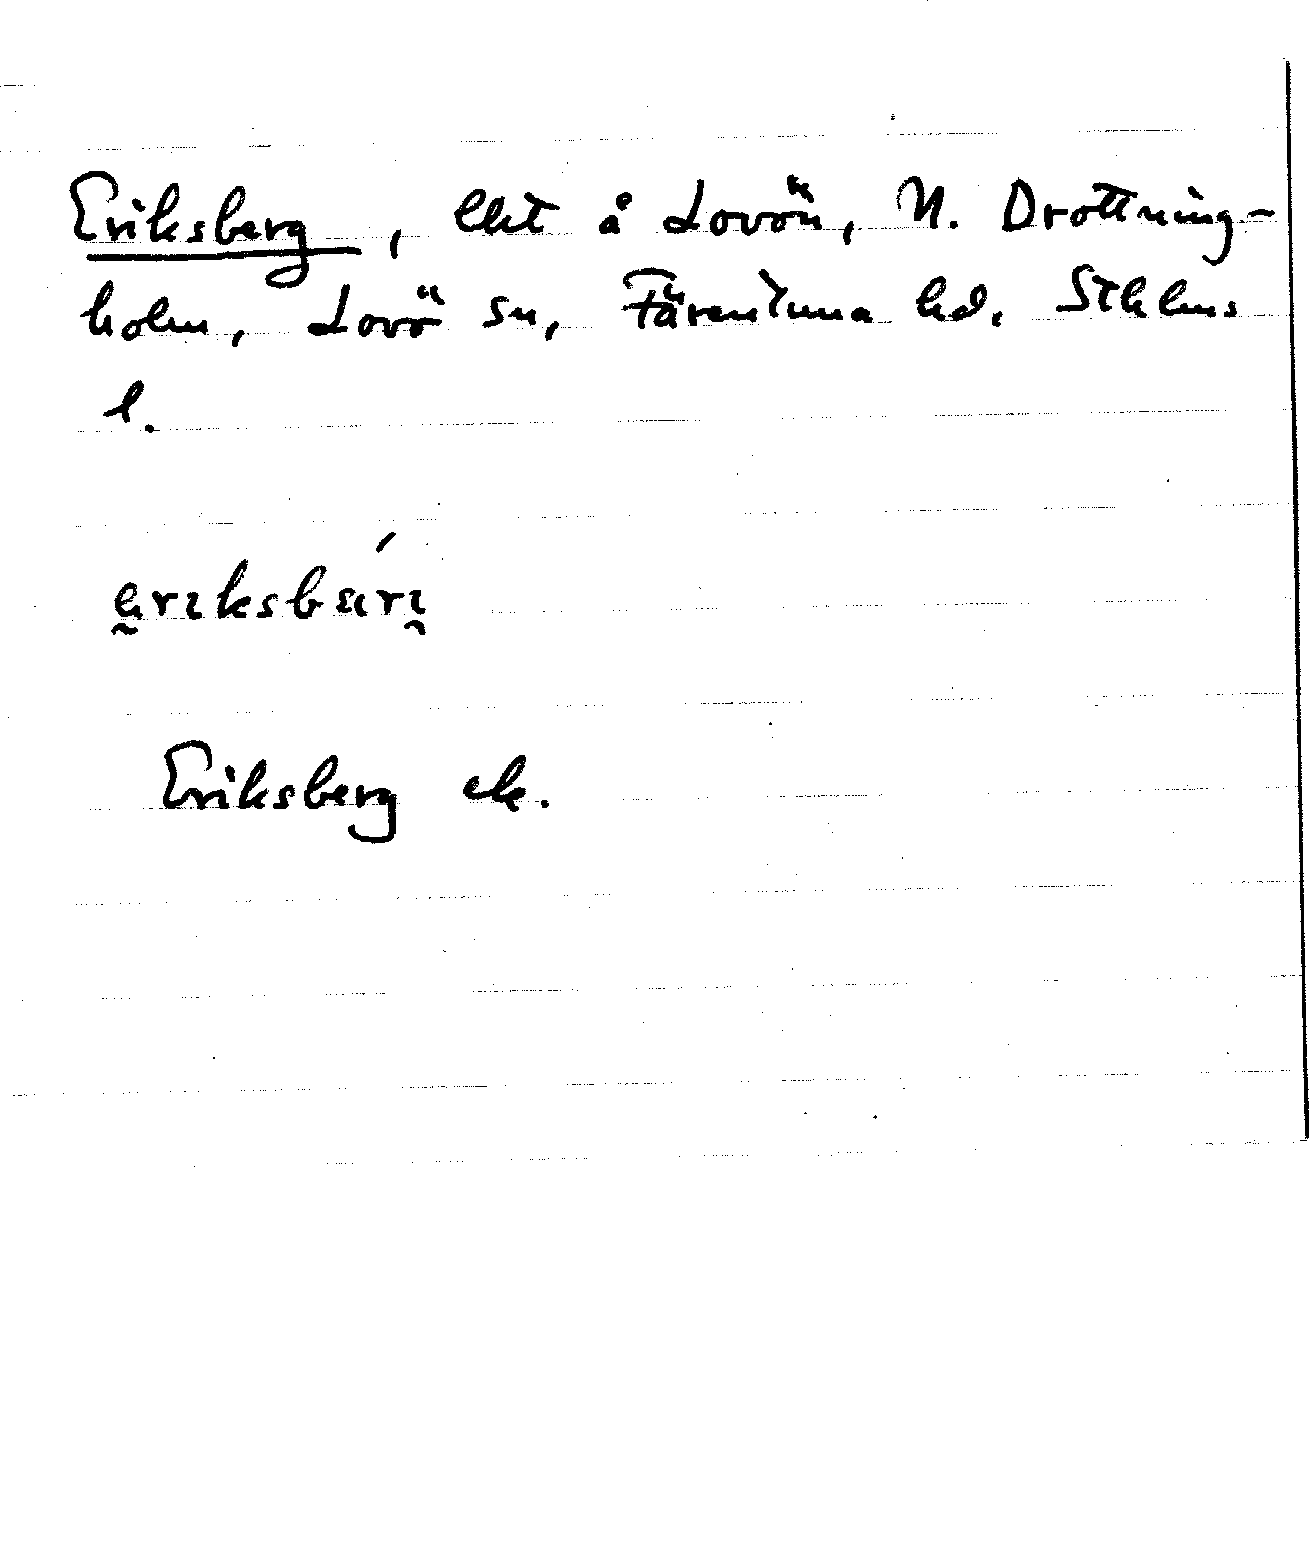 Eriksberg, lht å Lovön, N. Drottning-
holm, Lovö sn, Färentuna hd. Sthlms
l.
Eriksberg ek.